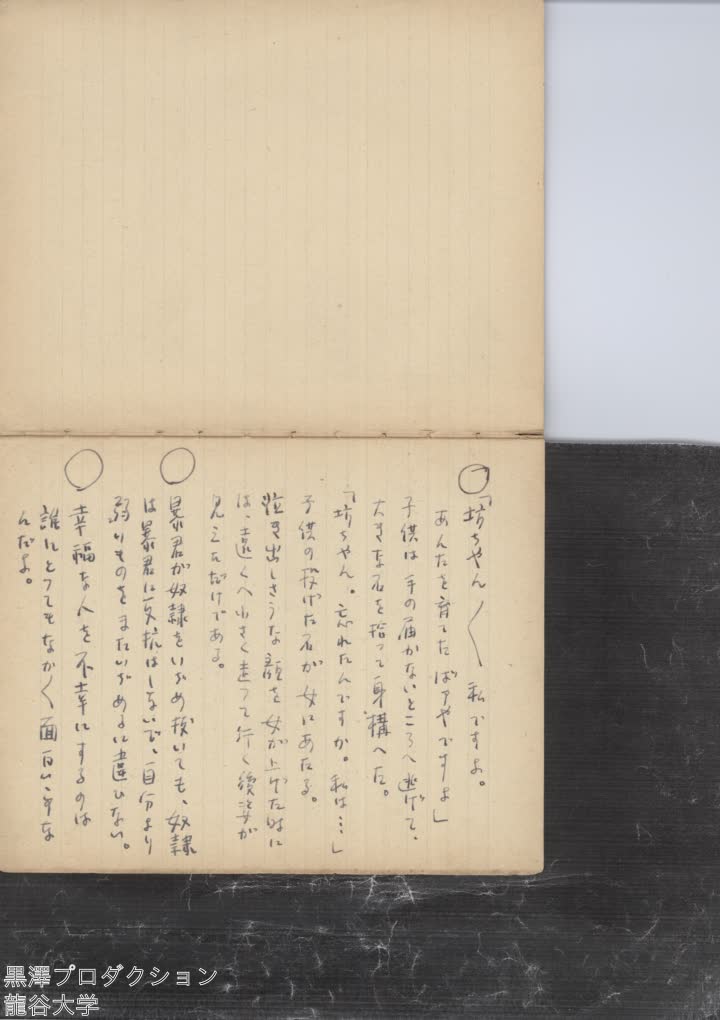 ○「坊ちやん〳〵私ですよ。
あんたを育てたばァやですよ」
子供は手の届かないところへ逃げて、
大きな石を拾って身構へた。
「坊ちやん。忘れたんですか。私は…」
子供の投げた石が女にあたる。
泣き出しさうな顔を女が上げた時に
は、遠くへ小さく走つて行く後姿が
見えただけである。
○暴君が奴隷をいぢめ抜いても、奴隷
は暴君に反抗はしないで、自分より
弱いものをまたいぢめるに違ひない。
○幸福な人を不幸にするのは
誰にとつてもなか〳〵面白い事な
んだよ。
黒澤プロダクション
龍谷大学